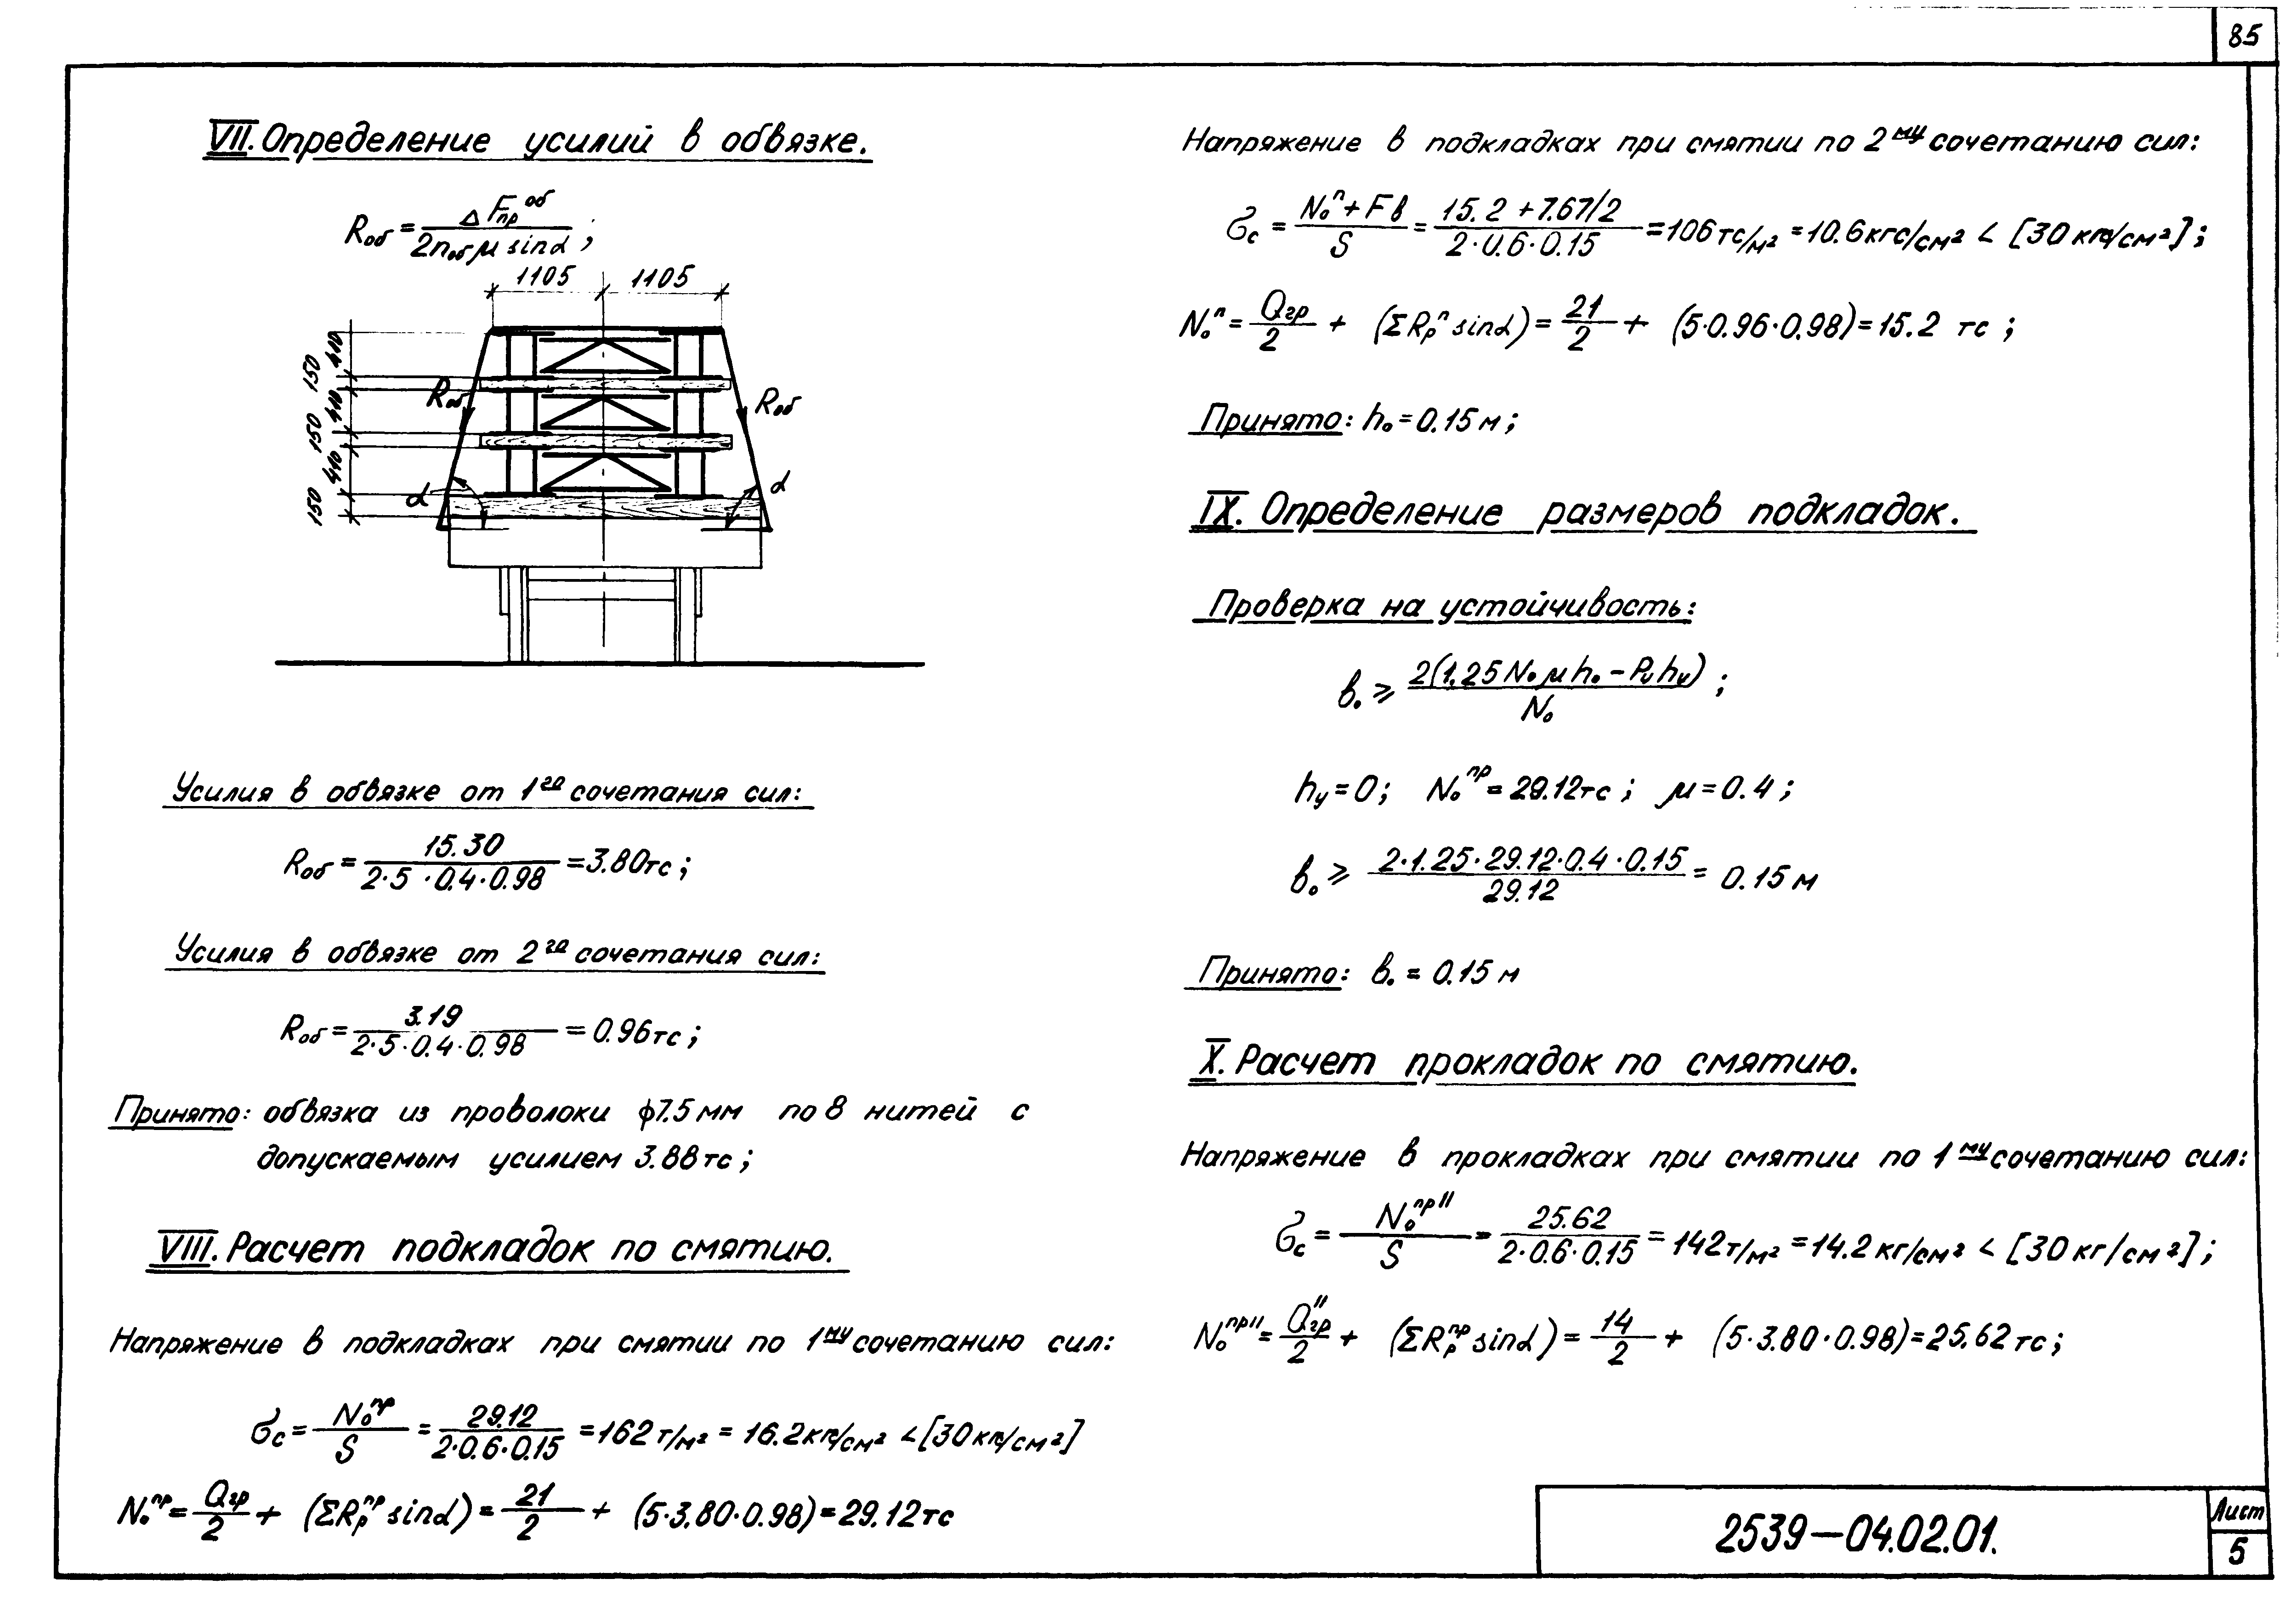 85
VII. Определение усилий в обвязке.
Rоб = ΔFпр^об / 2nоб μ sinα ;
1105 1105
410
150
410
150
410
150
Rоб Rоб
α α
Усилия в обвязке от 1го сочетания сил:
Rоб = 15.30 / 2·5·0.4·0.98 = 3.80тс ;
Усилия в обвязке от 2го сочетания сил:
Rоб = 3.19 / 2·5·0.4·0.98 = 0.96тс ;
Принято: обвязка из проволоки ф7.5мм по 8 нитей с
допускаемым усилием 3.88тс ;
VIII. Расчет подкладок по смятию.
Напряжение в подкладках при смятии по 1му сочетанию сил:
бс = N₀^пр / S = 29.12 / 2·0.6·0.15 = 162т/м² = 16.2кг/см² < [30кг/см²]
N₀^пр = Qгр / 2 + (ΣRр^пр sinα) = 21 / 2 + (5·3.80·0.98) = 29.12тс
Напряжение в подкладках при смятии по 2му сочетанию сил:
бс = N₀^п + Fв / S = 15.2 + 7.67/2 / 2·0.6·0.15 = 106тс/м² = 10.6кгс/см² < [30кгс/см²] ;
N₀^п = Qгр / 2 + (ΣRр^п sinα) = 21 / 2 + (5·0.96·0.98) = 15.2 тс ;
Принято: h₀ = 0.15м ;
IX. Определение размеров подкладок.
Проверка на устойчивость:
в₀ ⩾ 2(1.25N₀μh₀ - Pчhч) / N₀ ;
hу = 0 ; N₀^пр = 29.12тс ; μ = 0.4 ;
в₀ ⩾ 2·1.25·29.12·0.4·0.15 / 29.12 = 0.15м
Принято: в₀ = 0.15м
X. Расчет прокладок по смятию.
Напряжение в прокладках при смятии по 1му сочетанию сил:
бс = N₀^прII / S = 25.62 / 2·0.6·0.15 = 142т/м² = 14.2кг/см² < [30кг/см²] ;
N₀^прII = Qгр^II / 2 + (ΣRр^пр sinα) = 14 / 2 + (5·3.80·0.98) = 25.62тс ;
2539—04.02.01.
Лист
5